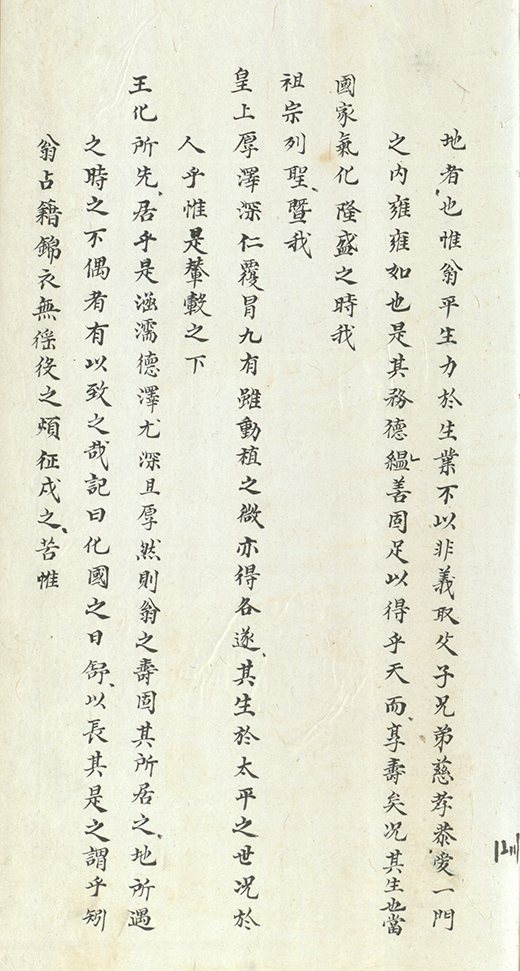 地者也惟翁平生力於生業不以非義取父子兄弟慈孝恭愛一門
之内雍雍如也是其務德緼善固足以得乎天而享壽矣况其生也當
國家氣化隆盛之時我
祖宗列聖暨我
皇上厚澤深仁覆冒九有雖動植之微亦得各遂其生於太平之世况於
人乎惟是輦轂之下
王化所先居乎是滋濡德澤尤深且厚然則翁之壽固其所居之地所遇
之時之不偶者有以致之哉記曰化國之日舒以長其是之謂乎矧
翁占籍錦衣無徭役之煩征戍之苦惟